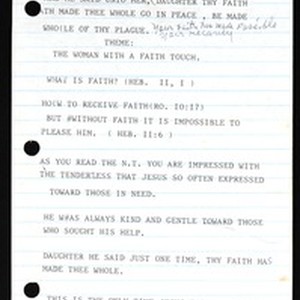 AND HE SAID UNTO HER, DAUGHTER THY FAITH
ATH MADE THEE WHOLE GO IN PEACE , BE MADE
WHO(LE OF THY PLAGUE. Your faith has made possible
your recovery
THEME:
THE WOMAN WITH A FAITH TOUCH,
WHAT IS FAITH? (HEB. II, I )
HOW TO RECEIVE FAITH(RO. 10:17)
BUT #WITHOUT FAITH IT IS IMPOSSIBLE TO
PLEASE HIM. ( HEB. II:6 )
AS YOU READ THE N.T. YOU ARE IMPRESSED WITH
THE TENDERLESS THAT JESUS SO OFTEN EXPRESSED
TOWARD THOSE IN NEED.
HE WAS ALWAYS KIND AND GENTLE TOWARD THOSE
WHO SOUGHT HIS HELP.
DAUGHTER HE SAID JUST ONE TIME, THY FAITH HAS
MADE THEE WHOLE.
THIS IS THE ONLY